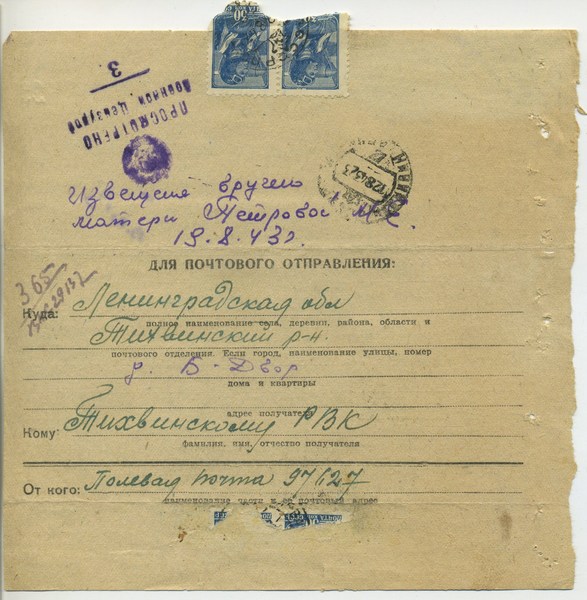 30
ПРОСМОТРЕНО
Военной Цензурой
3.
12 8 43 23
Извещение вручено
матери Петровой М.
19.8.43г.
ДЛЯ ПОЧТОВОГО ОТПРАВЛЕНИЯ:
365
Куда: Ленинградская обл
полное наименование села, деревни, района, области и
Тихвинский р-н.
почтового отделения. Если город, наименование улицы, номер
д. Б-Двор
дома и квартиры
адрес получателя
Кому: Тихвинскому РВК
фамилия, имя, отчество получателя
От кого: Полевая почта 97627
наименование части и ее почтовый адрес